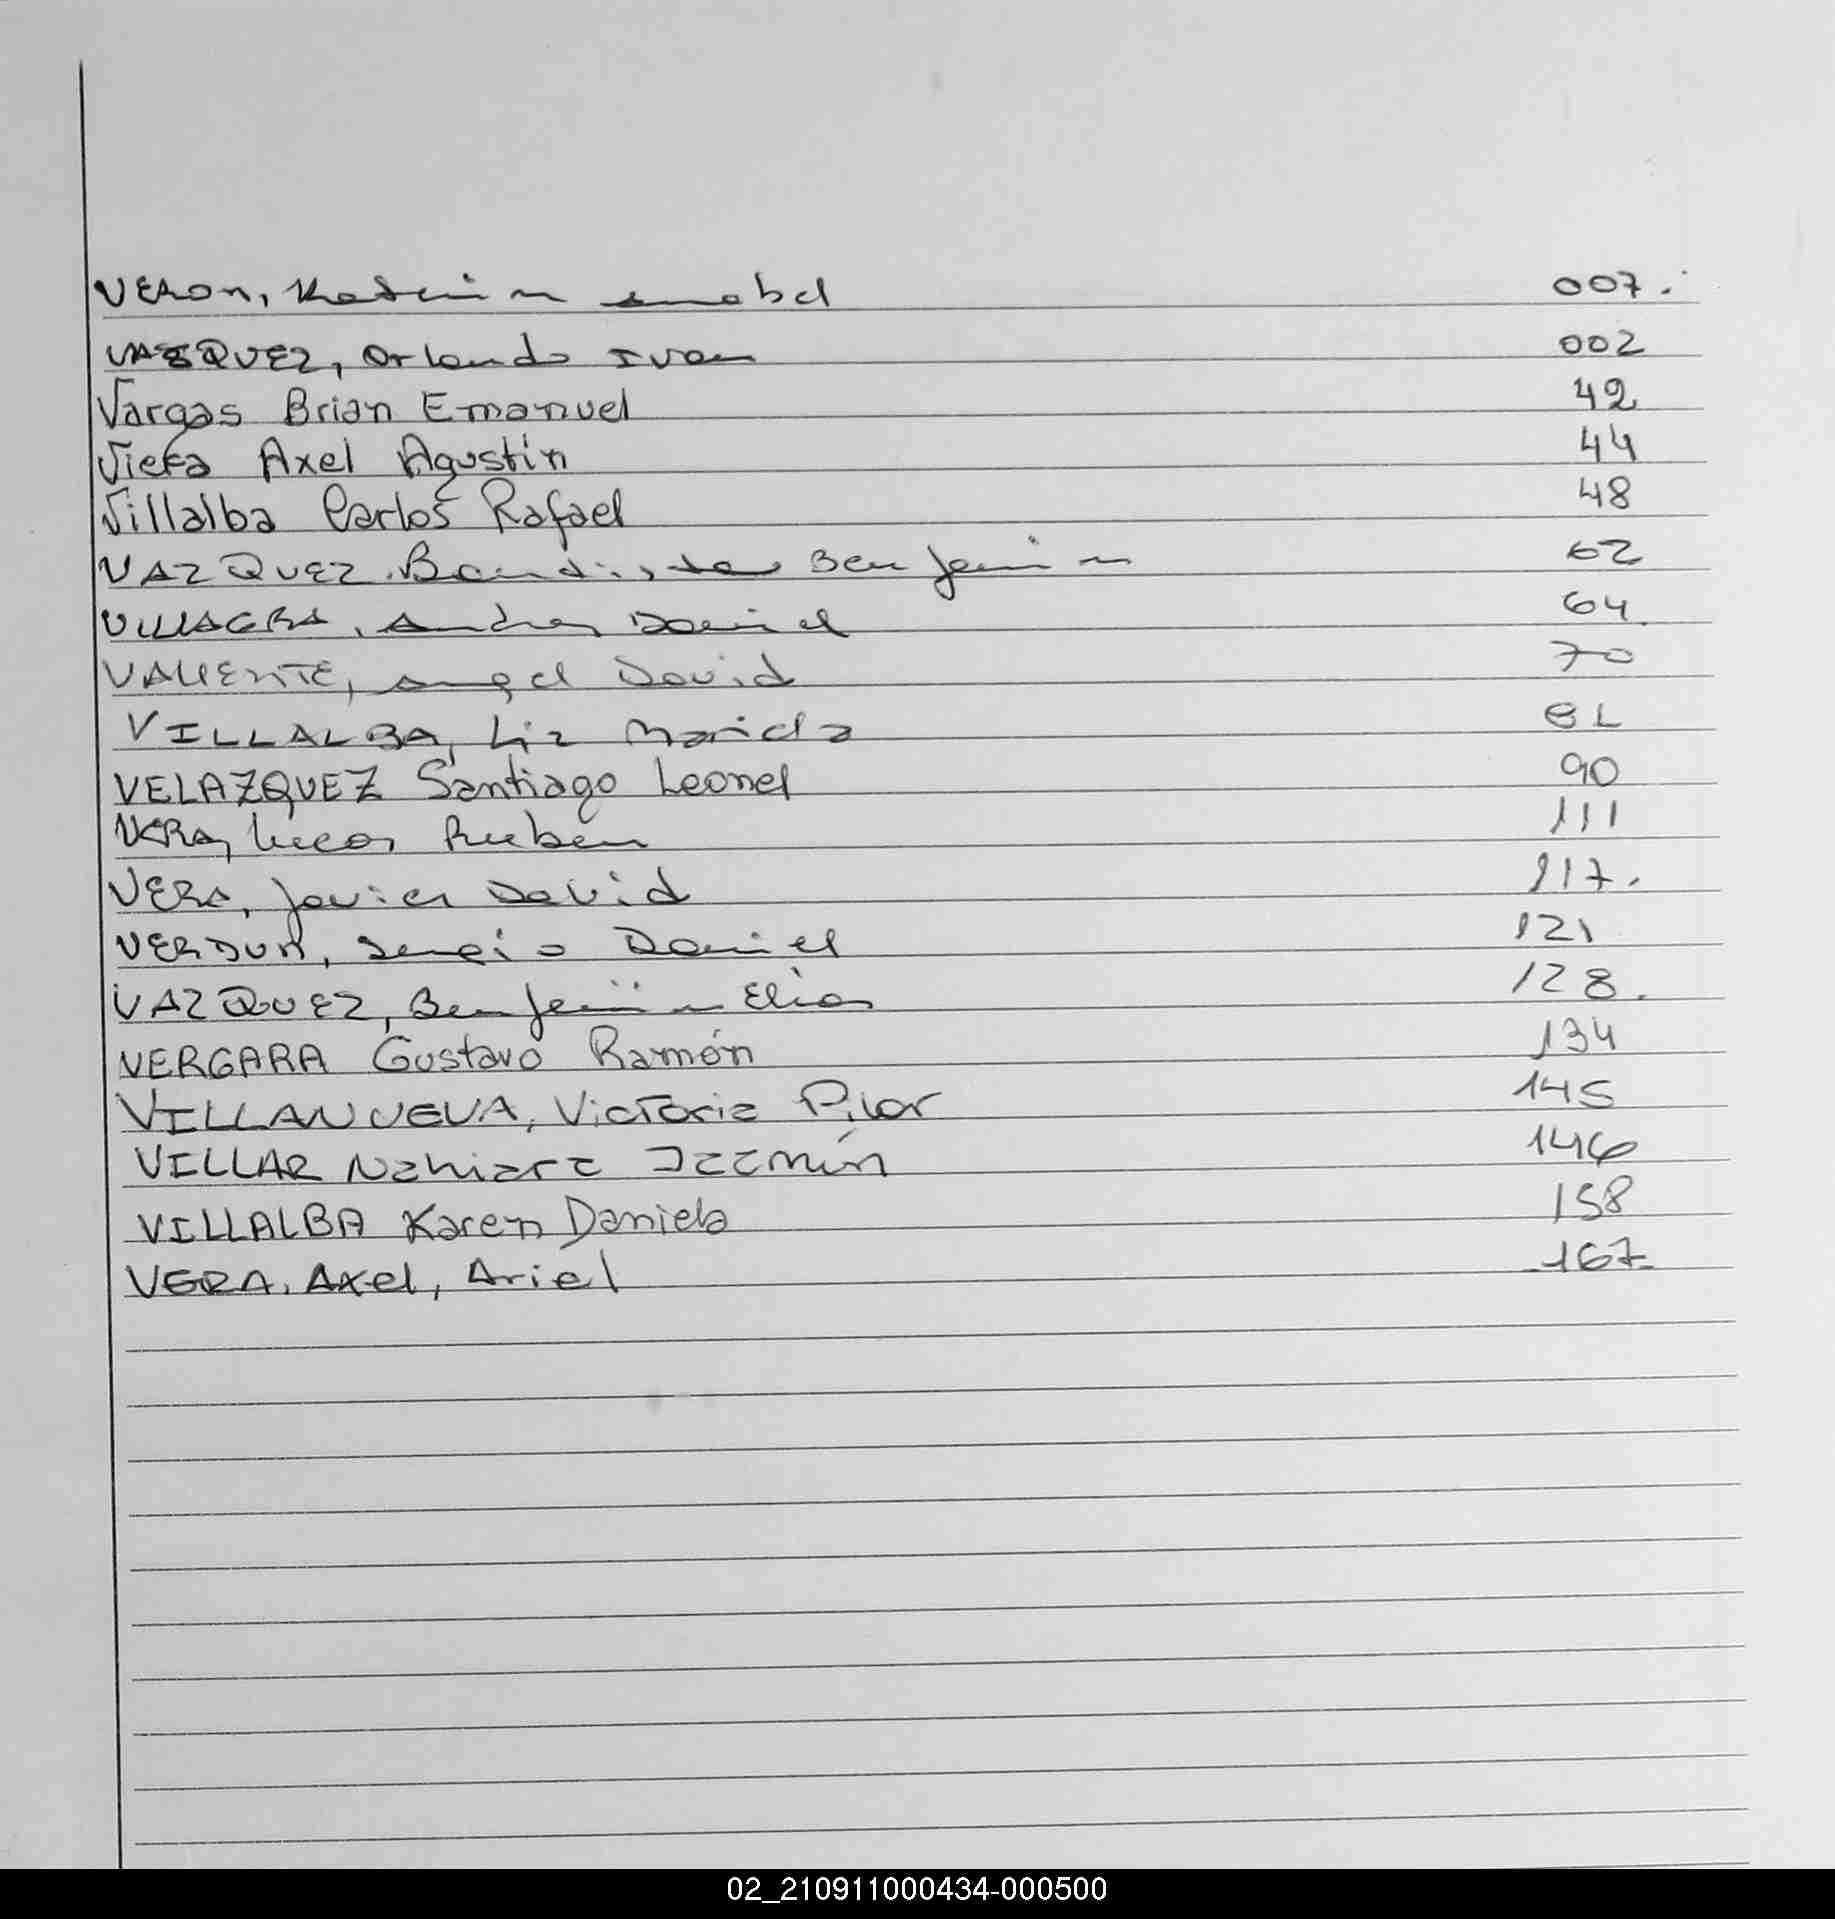 VERON, Katerin Anabel 007.
VAZQUEZ, Orlando Ivan 002
Vargas Brian Emanuel 42
Viera Axel Agustín 44
Villalba Carlos Rafael 48
VAZQUEZ. Bautista Benjamin 62
VILLAGRA, Andres Daniel 64
VALIENTE, Angel David 70
VILLALBA, Liz Mariela 81
VELAZQUEZ Santiago Leonel 90
VERA, Lucas Ruben 111
VERA, Javier David 117.
VERDUN, Sergio Daniel 121
VAZQUEZ, Benjamin Elias 128.
VERGARA Gustavo Ramón 134
VILLANUEVA, Victoria Pilar 145
VILLAR Nahiara Jazmín 146
VILLALBA Karen Daniela 158
VERA, Axel, Ariel 167
02_210911000434-000500